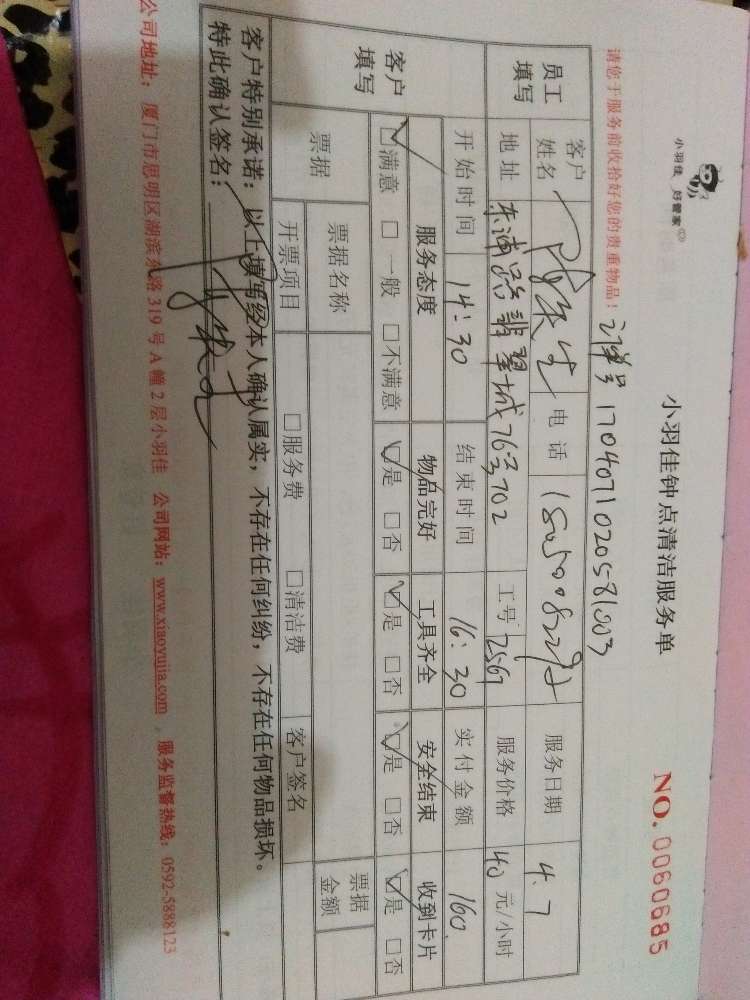 小羽佳 好管家
小羽佳钟点清洁服务单
NO. 0060685
请您于服务前收拾好您的贵重物品！
订单号 170407102058 1003
员工填写
客户姓名
电话
服务日期 4.7
地址 东浦路翡翠城76号702
工号 2567
服务价格 40 元/小时
开始时间 14:30
结束时间 16:30
实付金额 160
客户填写
服务态度 物品完好 工具齐全 安全结束 收到卡片
☑满意 □一般 □不满意 ☑是 □否 ☑是 □否 ☑是 □否 ☑是 □否
票据
票据名称
票据金额
开票项目 □服务费 □清洁费 客户签名
客户特别承诺：以上填写经本人确认属实，不存在任何纠纷，不存在任何物品损坏。
特此确认签名：
公司地址：厦门市思明区湖滨东路319号A幢2层小羽佳 公司网站：www.xiaoyujia.com，服务监督热线：0592-5888123